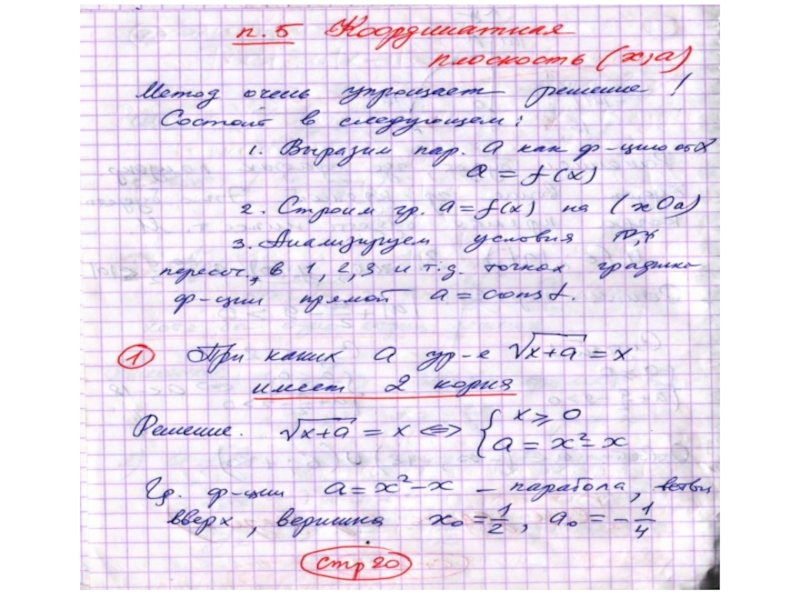 п.5 Координатная
плоскость (x;a)
Метод очень упрощает решение!
Состоит в следующем:
1. Выразим пар. a как ф-цию от x
a = f(x)
2. Строим гр. a = f(x) на (xOa)
3. Анализируем условия
пересеч, в 1, 2, 3 и т.д. точках графика
ф-ции прямой a = const.
1 При каких a ур-е √x+a = x
имеет 2 корня
Решение. √x+a = x ⇔ { x ≥ 0
a = x² - x
Гр. ф-ции a = x² - x – парабола, ветви
вверх, вершина x₀ = 1/2, a₀ = -1/4
стр 20